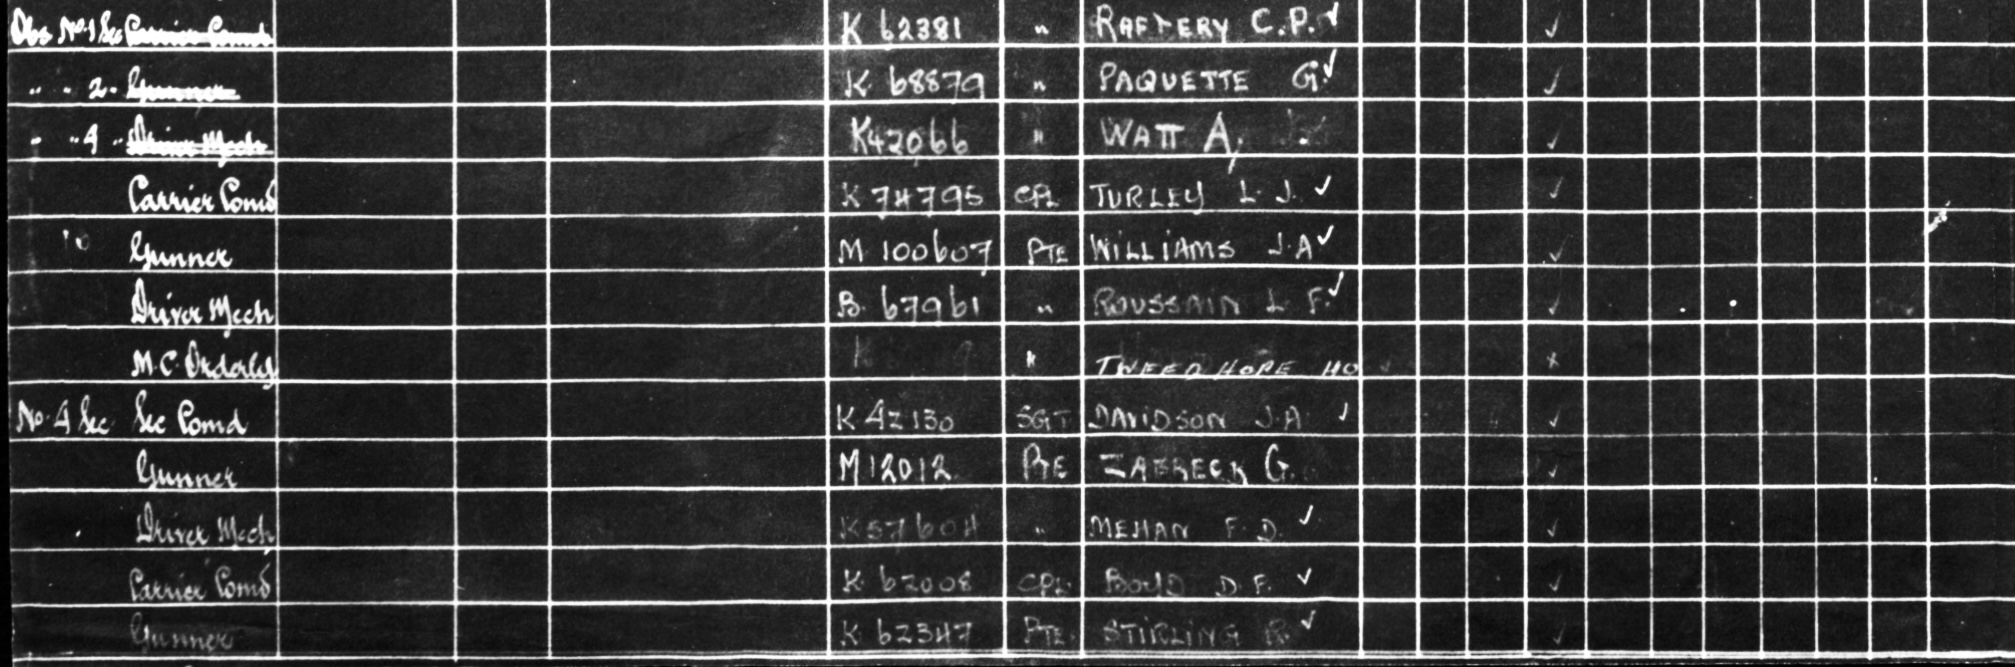 Obs No. 1 Sec Carrier Comd K 62381 " RAFTERY C.P. ✓ ✓
" " 2 " Gunner K 68879 " PAQUETTE G. ✓ ✓
" " 4 " Driver Mech K42066 " WATT A, ✓
Carrier Comd K 74795 CPL TURLEY L. J. ✓ ✓
Gunner M 100607 PTE WILLIAMS J.A ✓ ✓
Driver Mech B. 67961 " ROUSSAIN L F. ✓ ✓
M.C. Orderly K " TWEEDHOPE x
No. 4 Sec Sec Comd K 42130 SGT DAVIDSON J.A ✓ ✓
Gunner M12012 PTE G. ✓
Driver Mech K57604 " MEHAN F. D. ✓ ✓
Carrier Comd K 62008 CPL BOYD D.F. ✓ ✓
Gunner K 62347 PTE. STIRLING R. ✓ ✓